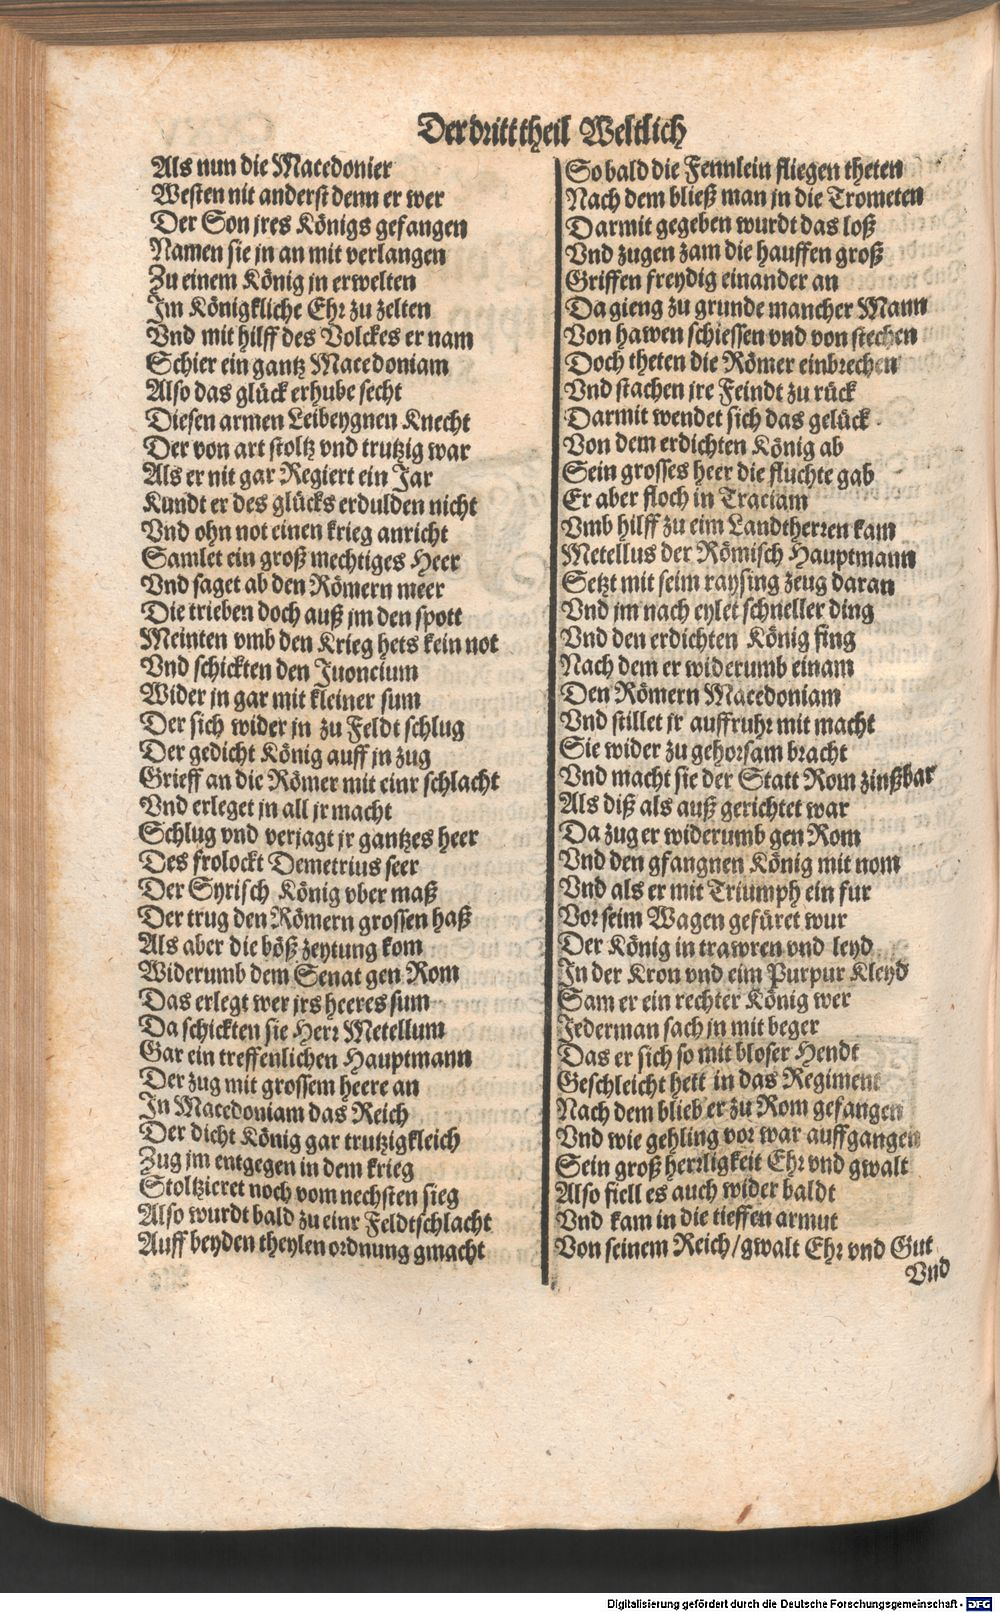 Der dritt theil Weltlich
Als nun die Macedonier
Westen nit anderst denn er wer
Der Son jres Königs gefangen
Namen sie jn an mit verlangen
Zu einem König jn erwelten
Im Königkliche Ehr zu zelten
Vnd mit hilff des Volckes er nam
Schier ein gantz Macedoniam
Also das glück erhube secht
Diesen armen Leibeygnen Knecht
Der von art stoltz vnd trutzig war
Als er nit gar Regiert ein Jar
Kundt er des glücks erdulden nicht
Vnd ohn not einen krieg anricht
Samlet ein groß mechtiges Heer
Vnd saget ab den Römern meer
Die trieben doch auß jm den spott
Meinten vmb den Krieg hets kein not
Vnd schickten den Juoncium
Wider jn gar mit kleiner sum
Der sich wider jn zu Feldt schlug
Der gedicht König auff jn zug
Grieff an die Römer mit einr schlacht
Vnd erleget jn all jr macht
Schlug vnd verjagt jr gantzes heer
Des frolockt Demetrius seer
Der Syrisch König vber maß
Der trug den Römern grossen haß
Als aber die böß zeytung kom
Widerumb dem Senat gen Rom
Das erlegt wer jrs heeres sum
Da schickten sie Herr Metellum
Gar ein treffenlichen Hauptmann
Der zug mit grossem heere an
In Macedoniam das Reich
Der dicht König gar trutzigkleich
Zug jm entgegen in dem krieg
Stoltzieret noch vom nechsten sieg
Also wurdt bald zu einr Feldtschlacht
Auff beyden theylen ordnung gmacht
So bald die Fennlein fliegen theten
Nach dem bließ man jn die Trometen
Darmit gegeben wurdt das loß
Vnd zugen zam die hauffen groß
Griffen freydig einander an
Da gieng zu grunde mancher Mann
Von hawen schiessen vnd von stechen
Doch theten die Römer einbrechen
Vnd stachen jre Feindt zu rück
Darmit wendet sich das gelück
Von dem erdichten König ab
Sein grosses heer die fluchte gab
Er aber floch in Traciam
Vmb hilff zu eim Landtherren kam
Metellus der Römisch Hauptmann
Setzt mit seim raysing zeug daran
Vnd jm nach eylet schneller ding
Vnd den erdichten König fing
Nach dem er widerumb einam
Den Römern Macedoniam
Vnd stillet jr auffruhr mit macht
Sie wider zu gehorsam bracht
Vnd macht sie der Statt Rom zinßbar
Als diß als auß gerichtet war
Da zug er widerumb gen Rom
Vnd den gfangnen König mit nom
Vnd als er mit Triumph ein fur
Vor seim Wagen gefüret wur
Der König in trawren vnd leyd
In der Kron vnd eim Purpur Kleyd
Sam er ein rechter König wer
Jederman sach jn mit beger
Das er sich so mit bloser Hendt
Geschleicht hett in das Regiment
Nach dem blieb er zu Rom gefangen
Vnd wie gehling vor war auffgangen
Sein groß herrligkeit Ehr vnd gwalt
Also fiell es auch wider baldt
Vnd kam in die tieffen armut
Von seinem Reich/gwalt Ehr vnd Gut
Vnd
Digitalisierung gefördert durch die Deutsche Forschungsgemeinschaft - DFG